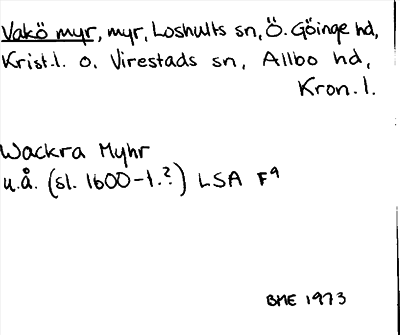 Vakö myr, myr, Loshults sn, Ö. Göinge hd,
Krist.l. o. Virestads sn, Allbo hd,
Kron.l.
Wackra Myhr
u.å. (sl. 1600-t.?) LSA F9
BME 1973